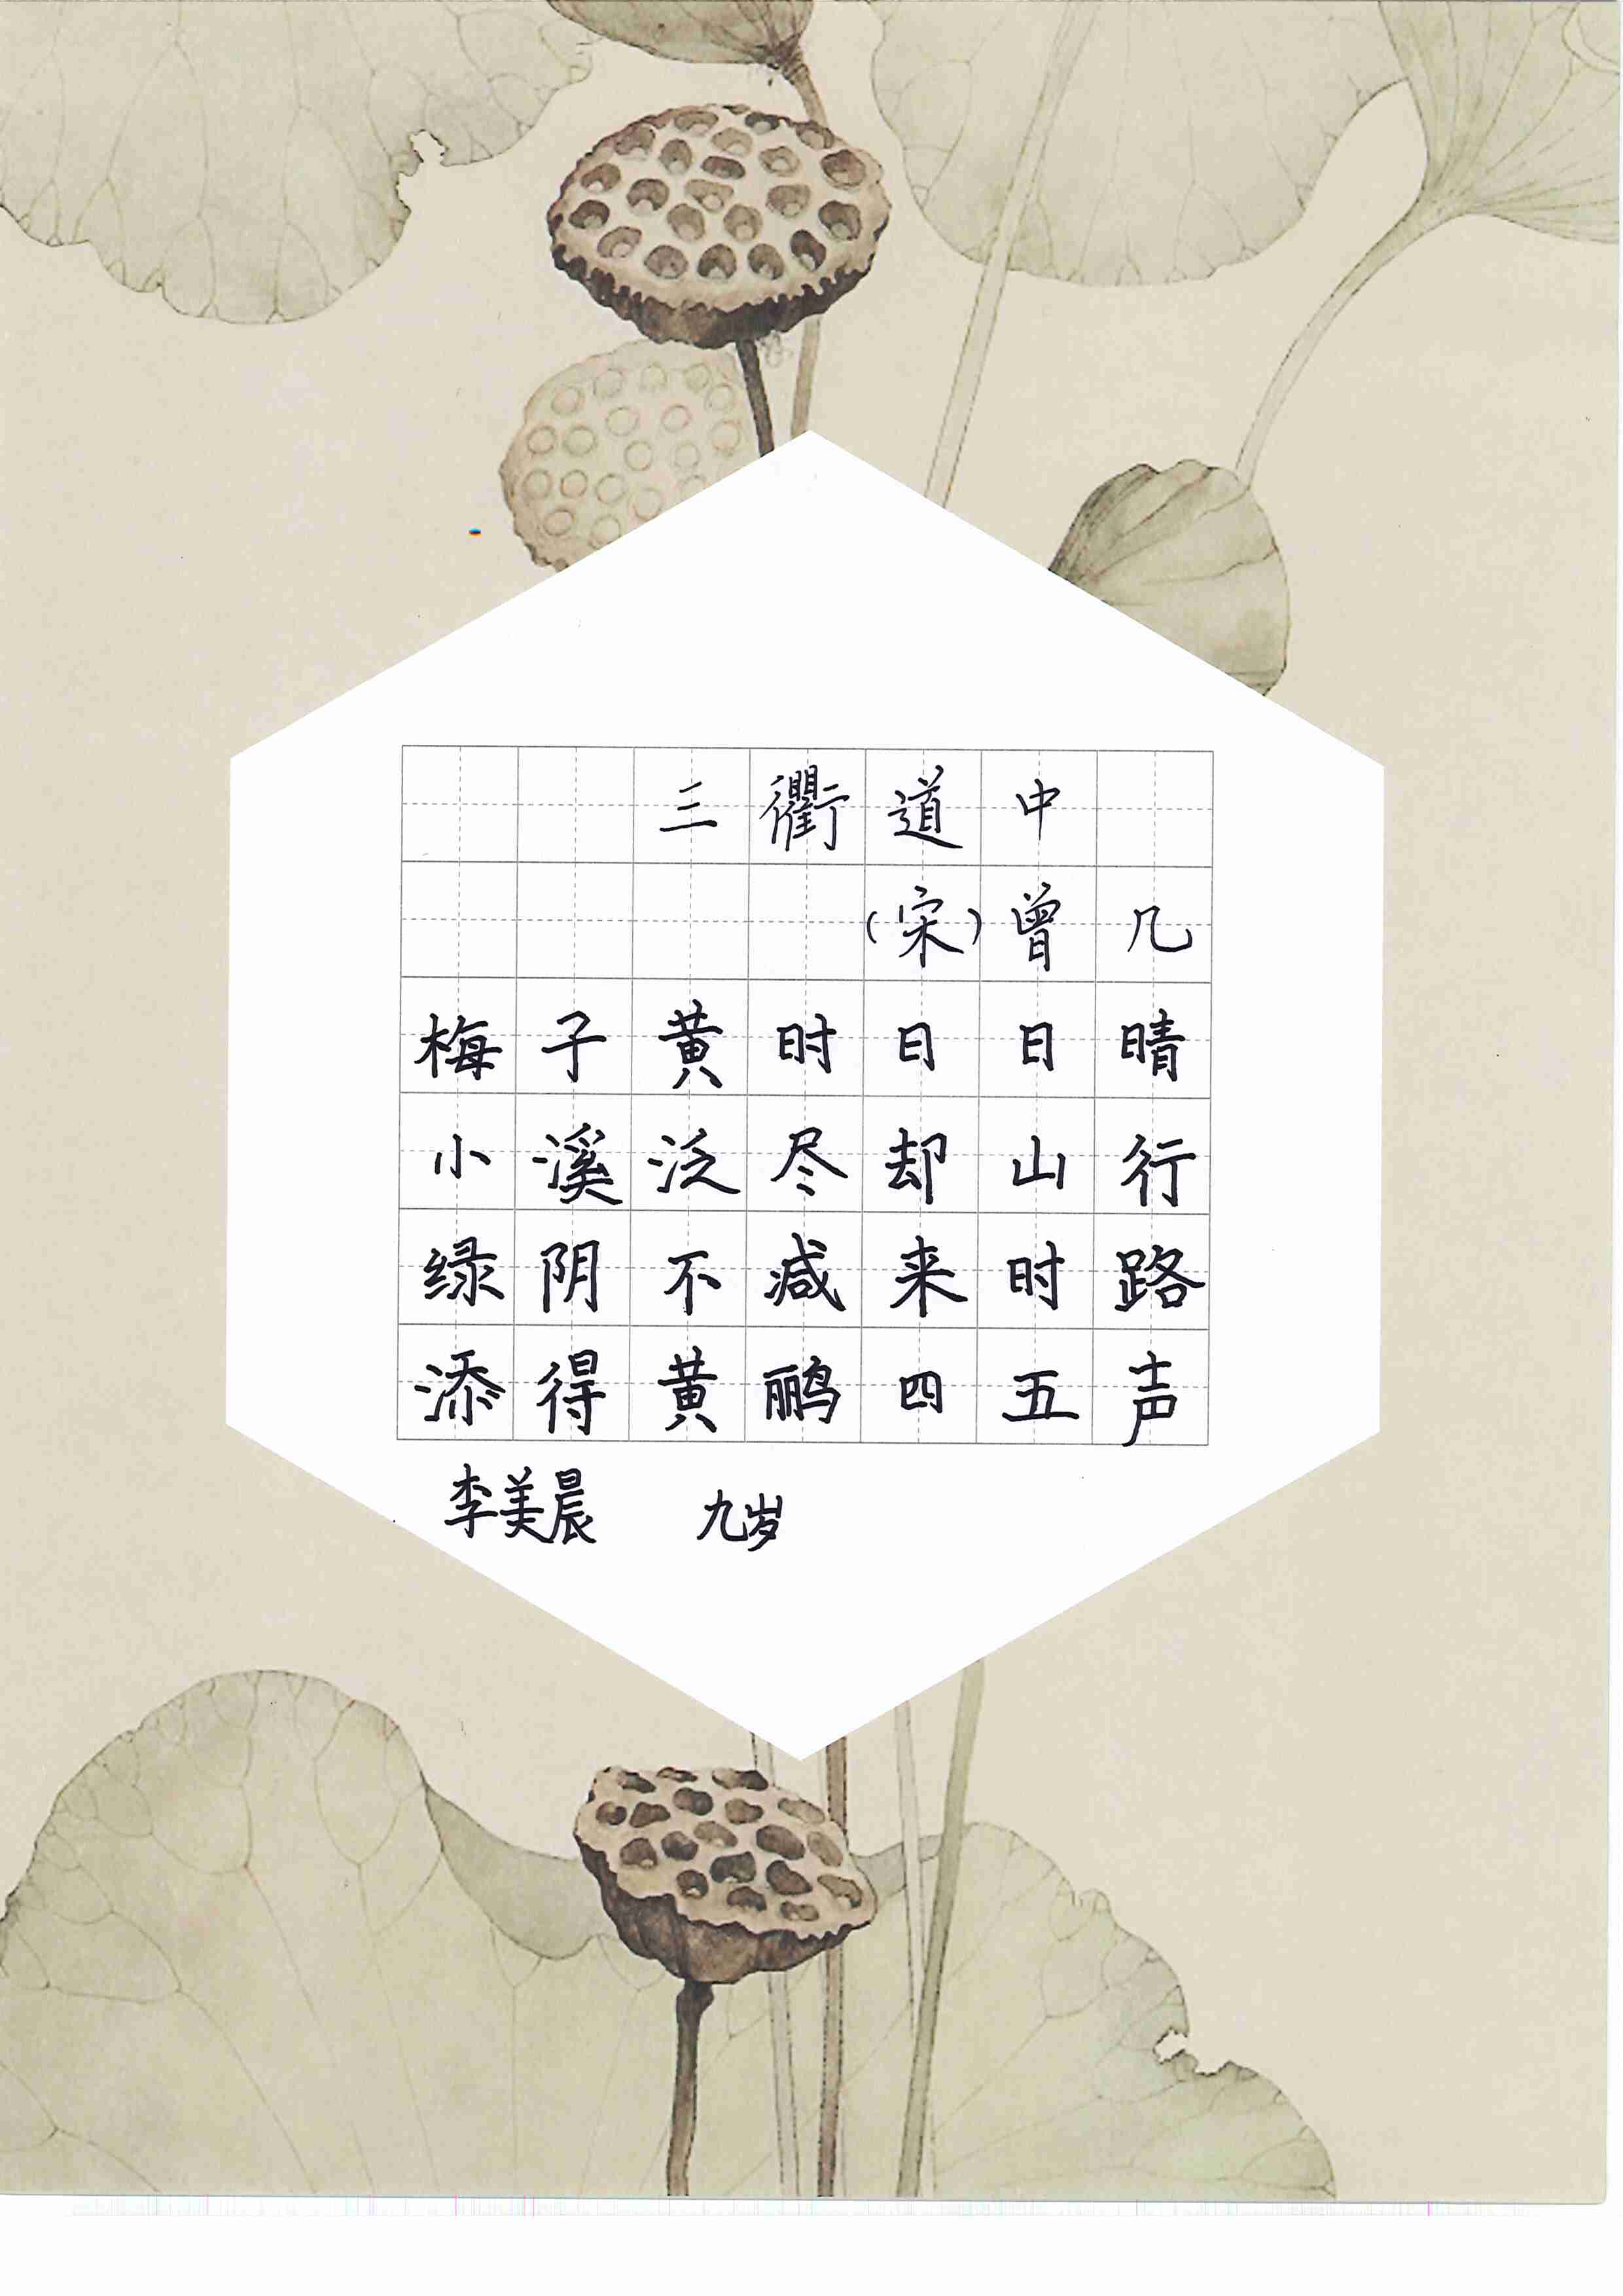 三衢道中
(宋)曾几
梅子黄时日日晴
小溪泛尽却山行
绿阴不减来时路
添得黄鹂四五声
李美晨 九岁